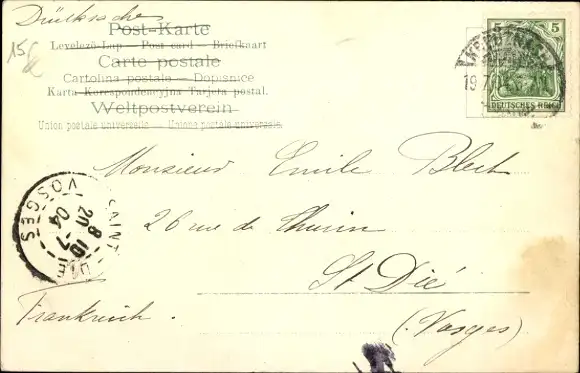 Drucksache
15
Post-Karte
Levelező-Lap — Post card — Briefkaart
Carte postale
Cartolina postale — Dopisnice
Karta Korrespondencyjna Tarjeta postal.
Weltpostverein
Union postale universelle — Unione postale universale.
5 5
DEUTSCHES REICH
19.7
Monsieur Emile Blech
26 rue de Thurin
St Dié
(Vosges)
Frankreich.
SAINT-DIÉ
8 10
20 -7
04
VOSGES